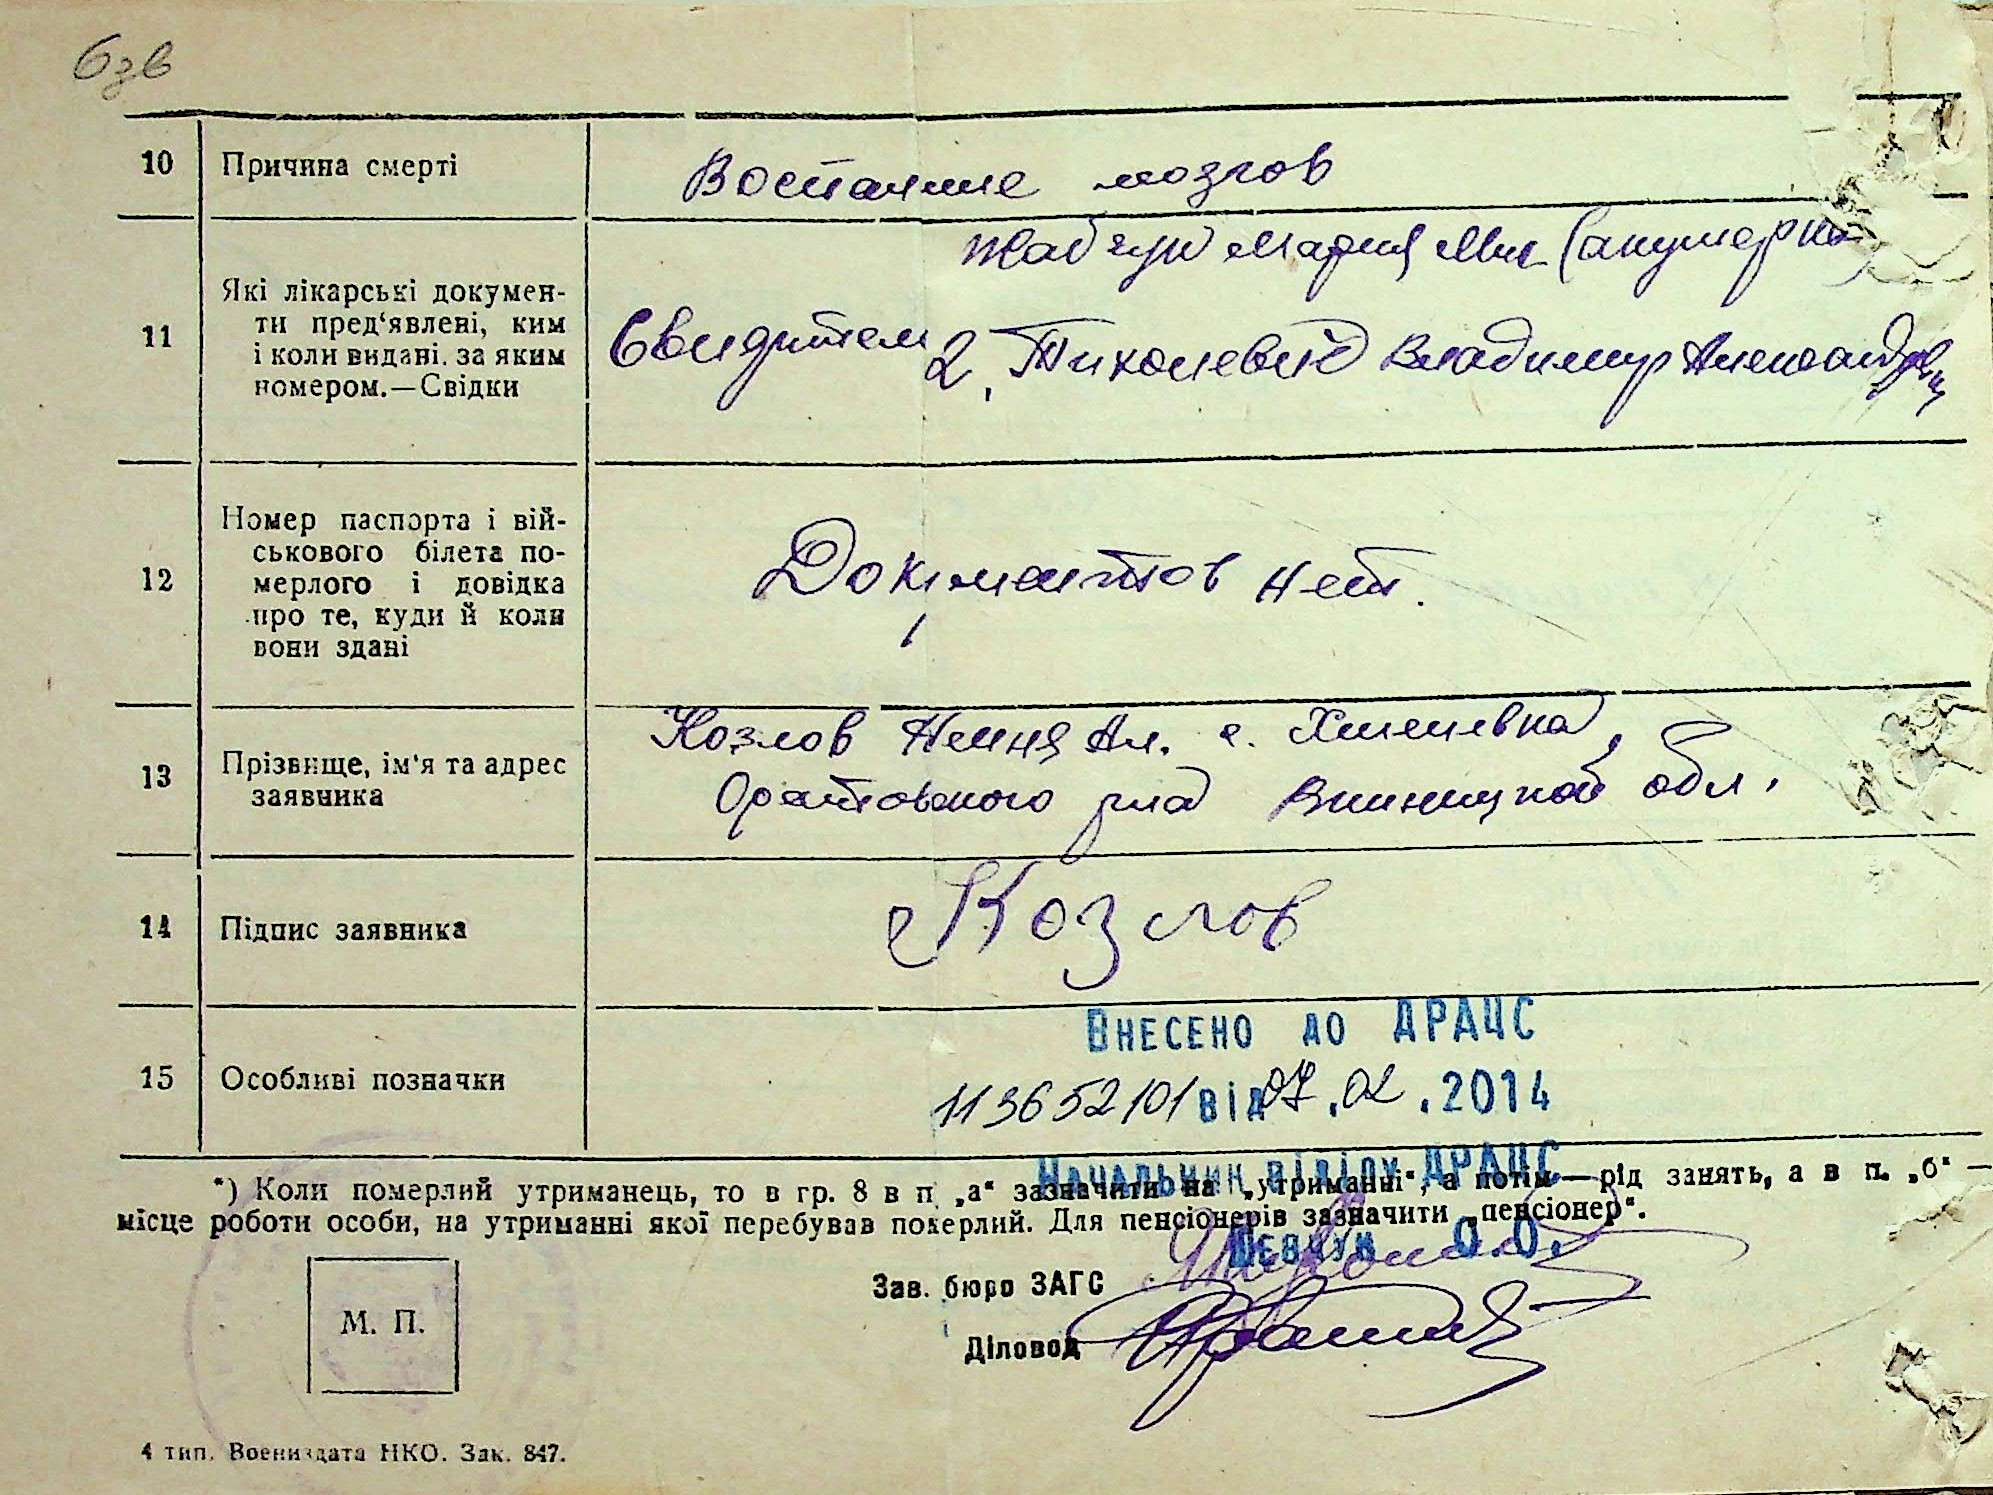 6зв
10 Причина смерті
Воспаление мозгов
11 Які лікарські докумен-
ти пред'явлені, ким
і коли видані, за яким
номером.—Свідки
Мария (акушерка
Свидетели 2, Владимир Александрович
12 Номер паспорта і вій-
ськового білета по-
мерлого і довідка
про те, куди й коли
вони здані
Документов нет.
13 Прізвище, ім'я та адрес
заявника
Козлов Ал. с. Хмелевка,
Оратовского р-на Винницкой обл.
14 Підпис заявника
Козлов
15 Особливі позначки
Внесено до ДРАЦС
113652101 від 07.02.2014
Начальник відділу ДРАЦС
Шевчук О.О.
*) Коли померлий утриманець, то в гр. 8 в п. „а“ зазначити на „утриманні“, а потім — рід занять, а в п. „б“ —
місце роботи особи, на утриманні якої перебував померлий. Для пенсіонерів зазначити „пенсіонер“.
М. П.
Зав. бюро ЗАГС
Діловод
4 тип. Воениздата НКО. Зак. 847.